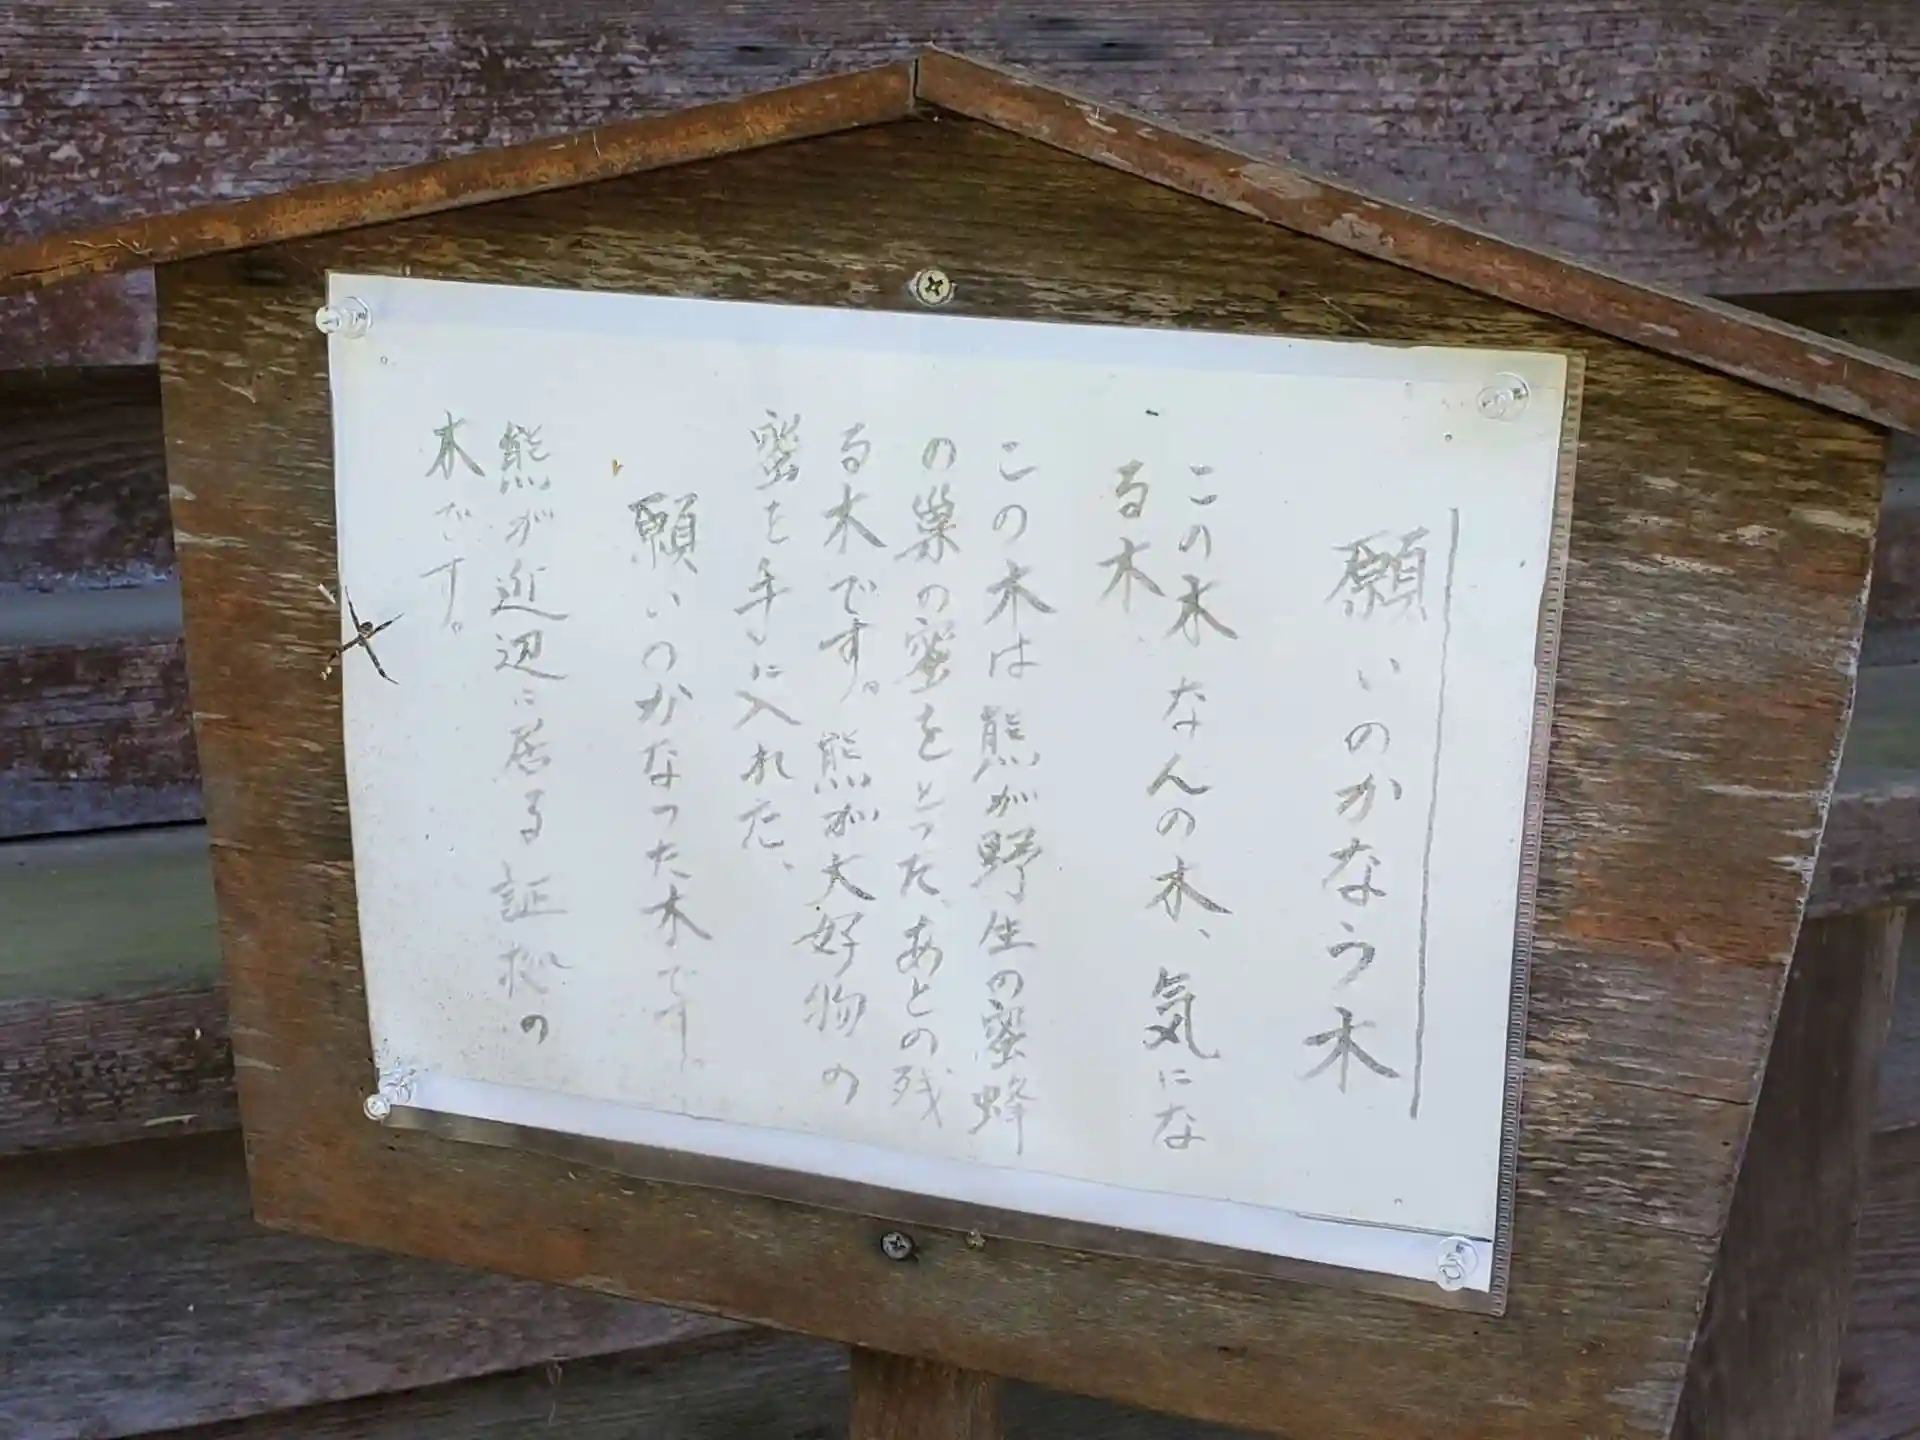 願いのかなう木
この木なんの木、気にな
る木、
この木は熊が野生の蜜蜂
の巣の蜜をとったあとの残
る木です。熊が大好物の
蜜を手に入れた、
願いのかなった木です。
熊が近辺に居る証拠の
木です。